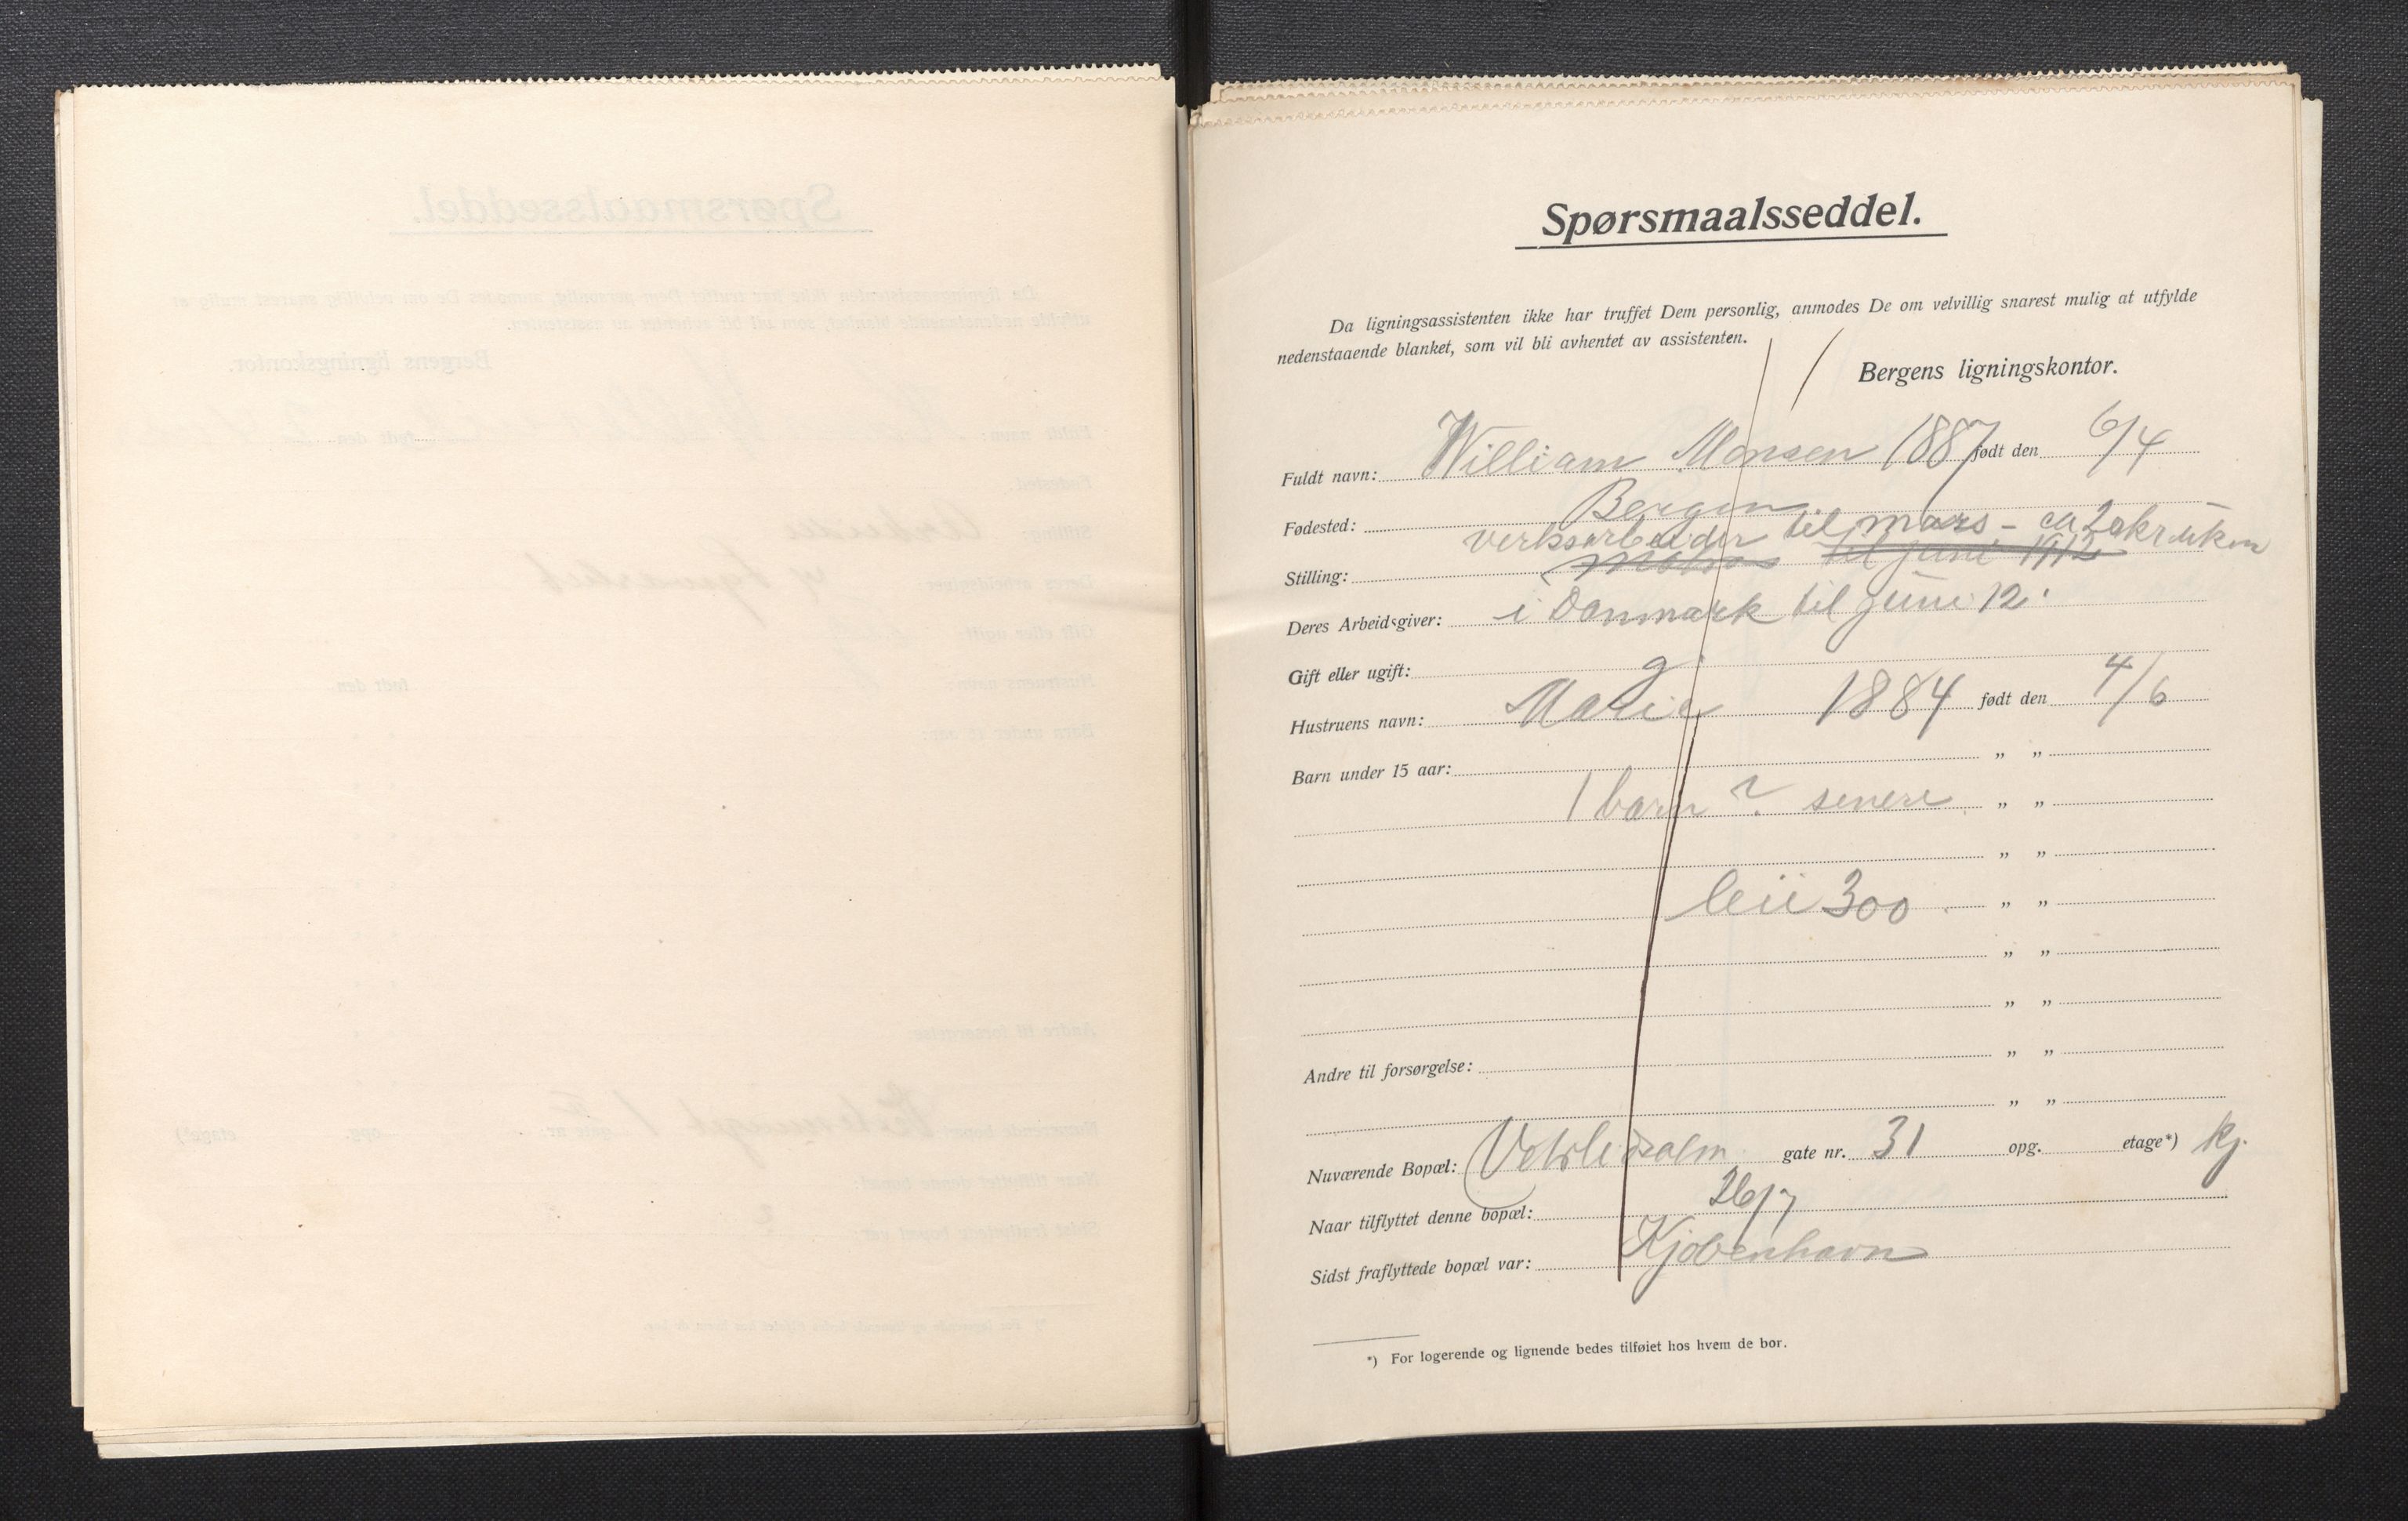 Spørsmaalsseddel.
Da ligningsassistenten ikke har truffet Dem personlig, anmodes De om velvillig snarest mulig at utfylde
nedenstaaende blanket, som vil bli avhentet av assistenten.
Bergens ligningskontor.
Fuldt navn: William Monsen 1887 født den 6/4
Fødested: Bergen
verksarbeider til mars - ca 20 kr uken
Stilling: til juni 1912
Deres Arbeidsgiver: i Danmark til juni 12.
Gift eller ugift: g
Hustruens navn: Marie 1884 født den 4/6
Barn under 15 aar: „ „
1 barn ? senere „ „
„ „
leie 300 . „ „
„ „
„ „
Andre til forsørgelse: „ „
„ „
Nuværende Bopæl: Vetrlidsalm gate nr. 31 opg. etage*) kj.
Naar tilflyttet denne bopæl: 26/7
Sidst fraflyttede bopæl var: Kjøbenhavn
*) For logerende og lignende bedes tilføiet hos hvem de bor.